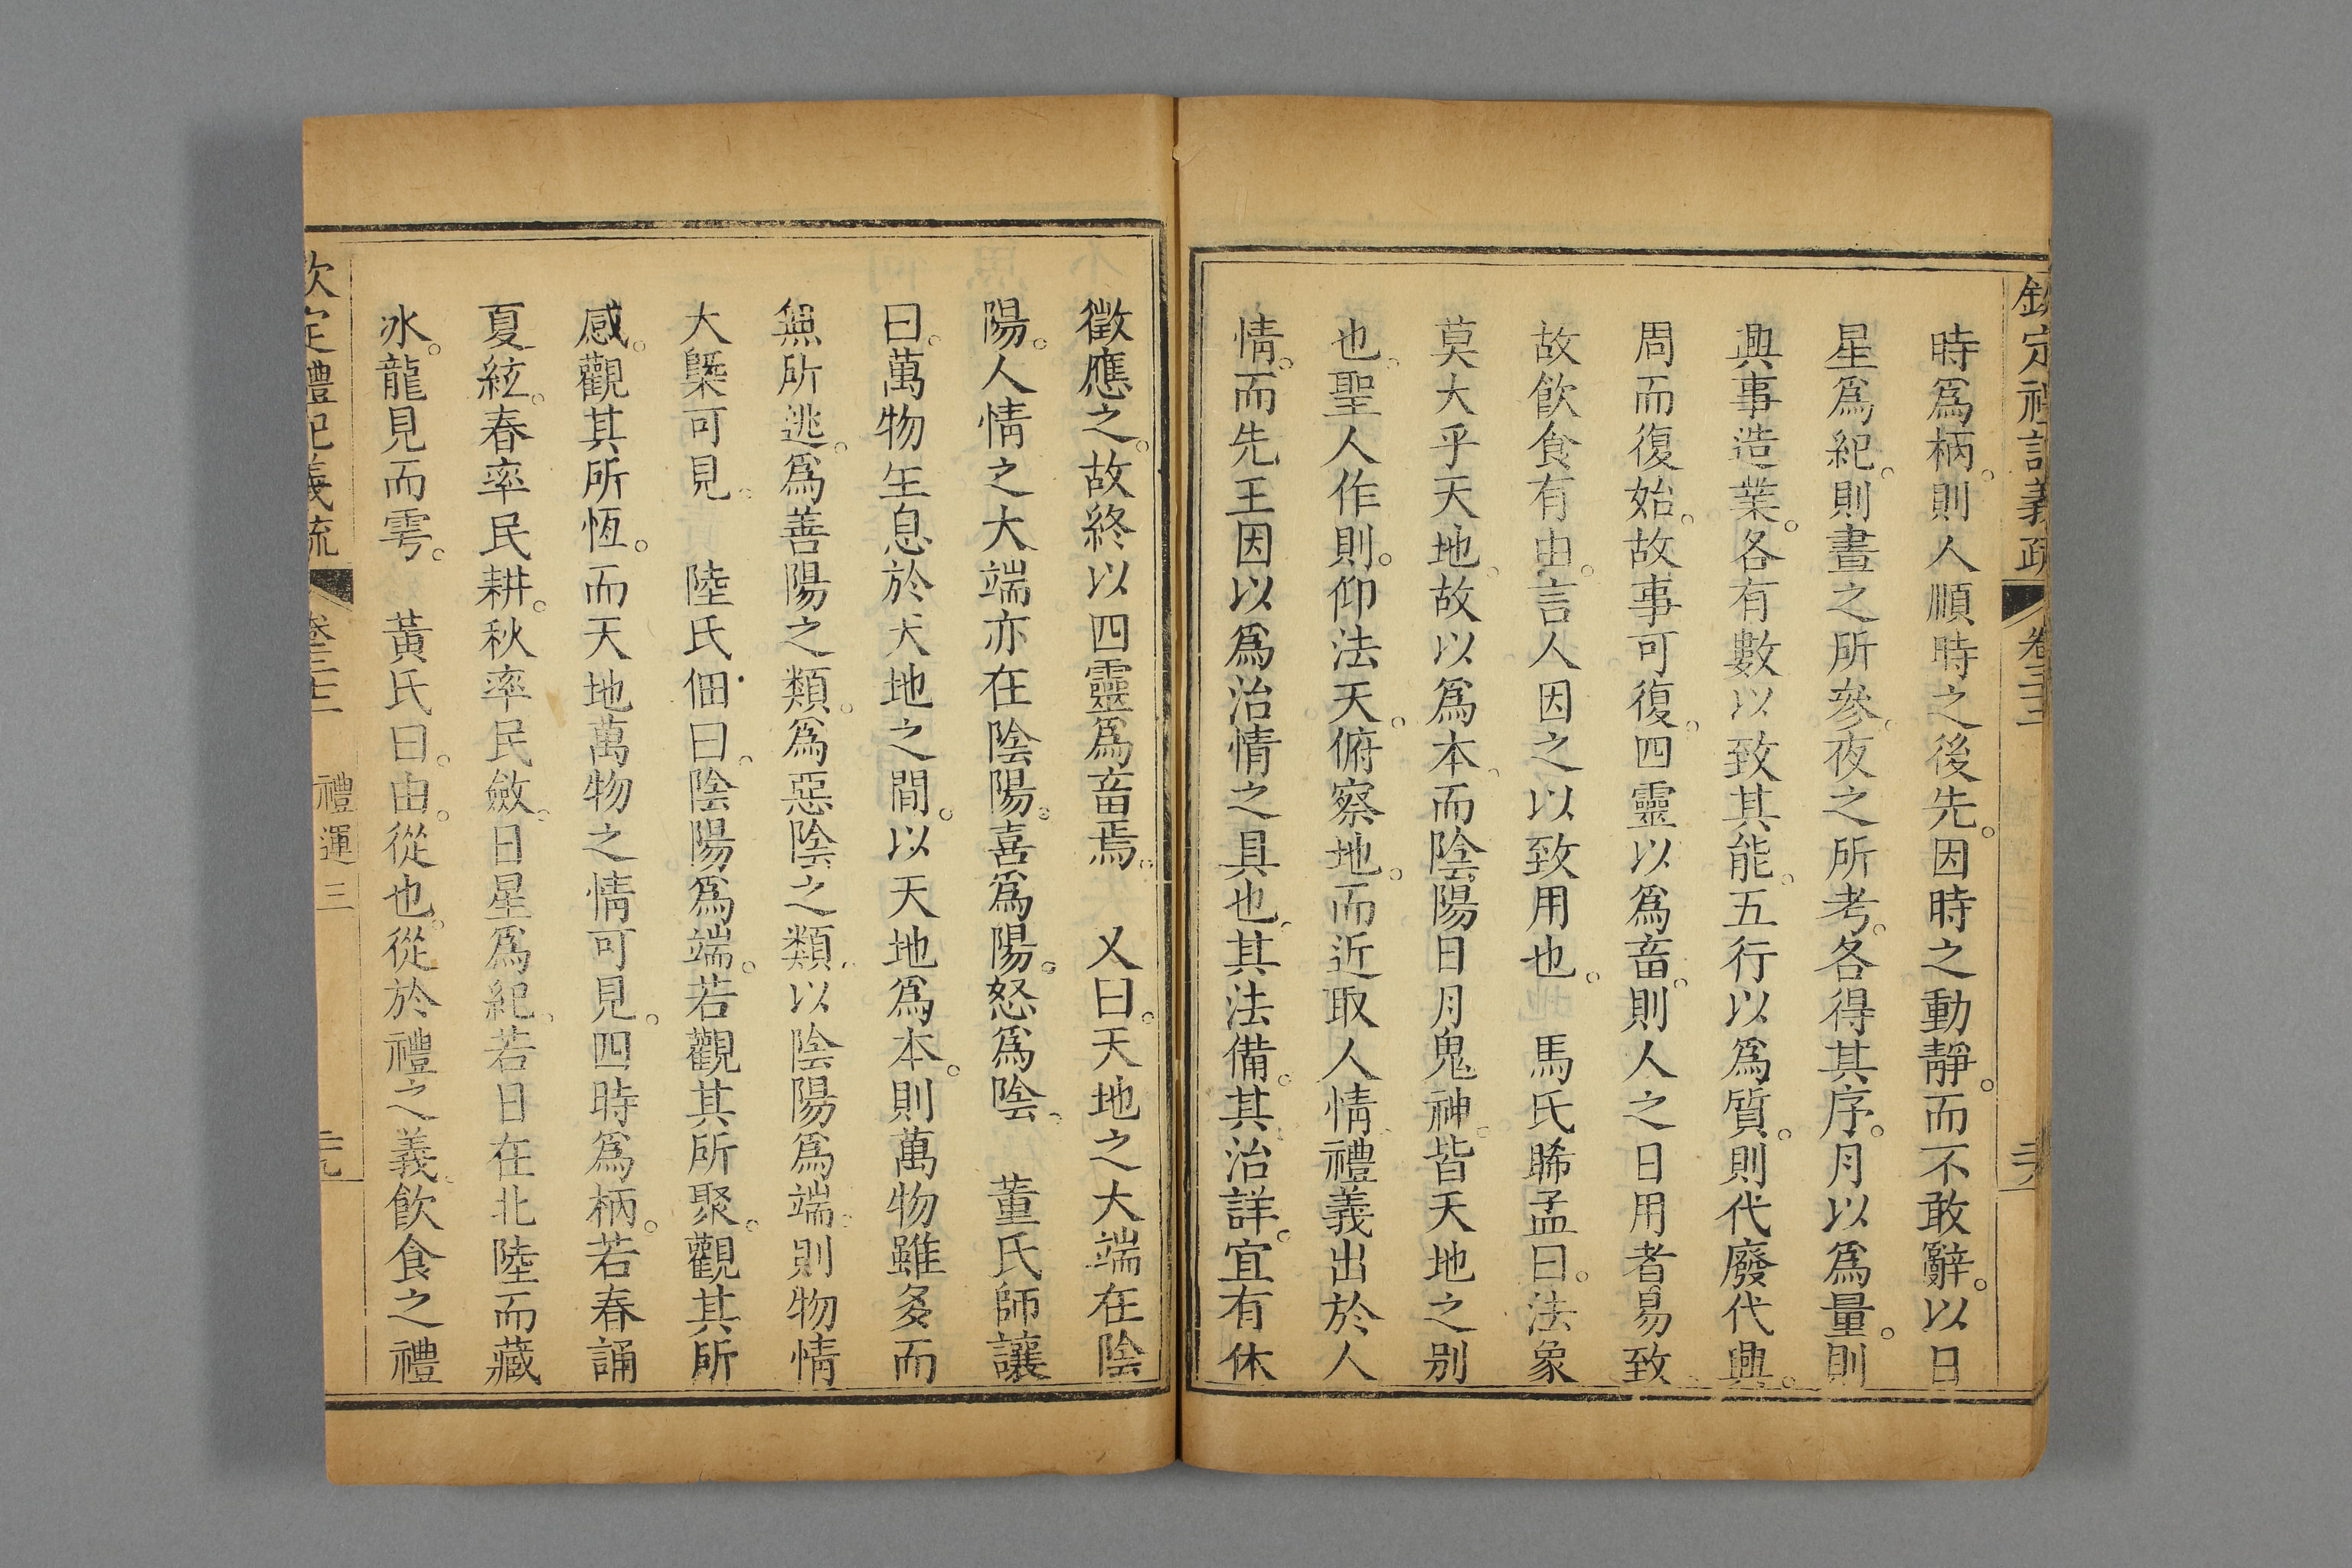 欽定禮記義疏 卷三十一
時爲柄。則人順時之後先。因時之動靜。而不敢辭。以日
星爲紀。則晝之所參。夜之所考。各得其序。月以爲量。則
興事造業。各有數以致其能。五行以爲質。則代廢代興。
周而復始。故事可復。四靈以爲畜。則人之日用者易致。
故飲食有由。言人因之以致用也。 馬氏睎孟曰。法象
莫大乎天地。故以爲本。而陰陽日月鬼神。皆天地之别
也。聖人作則。仰法天。俯察地。而近取人情。禮義出於人
情。而先王因以爲治情之具也。其法備。其治詳。宜有休
徵應之。故終以四靈爲畜焉。 又曰。天地之大端在陰
陽。人情之大端亦在陰陽。喜爲陽。怒爲陰。 董氏師讓
曰。萬物生息於天地之間。以天地爲本。則萬物雖多而
無所逃。爲善陽之類。爲惡陰之類。以陰陽爲端。則物情
大槩可見。 陸氏佃曰。陰陽爲端。若觀其所聚。觀其所
感。觀其所恆。而天地萬物之情可見。四時爲柄。若春誦
夏絃。春率民耕。秋率民斂。日星爲紀。若日在北陸而藏
冰。龍見而雩。 黃氏曰。由。從也。從於禮之義。飲食之禮
欽定禮記義疏 卷三十一 禮運三